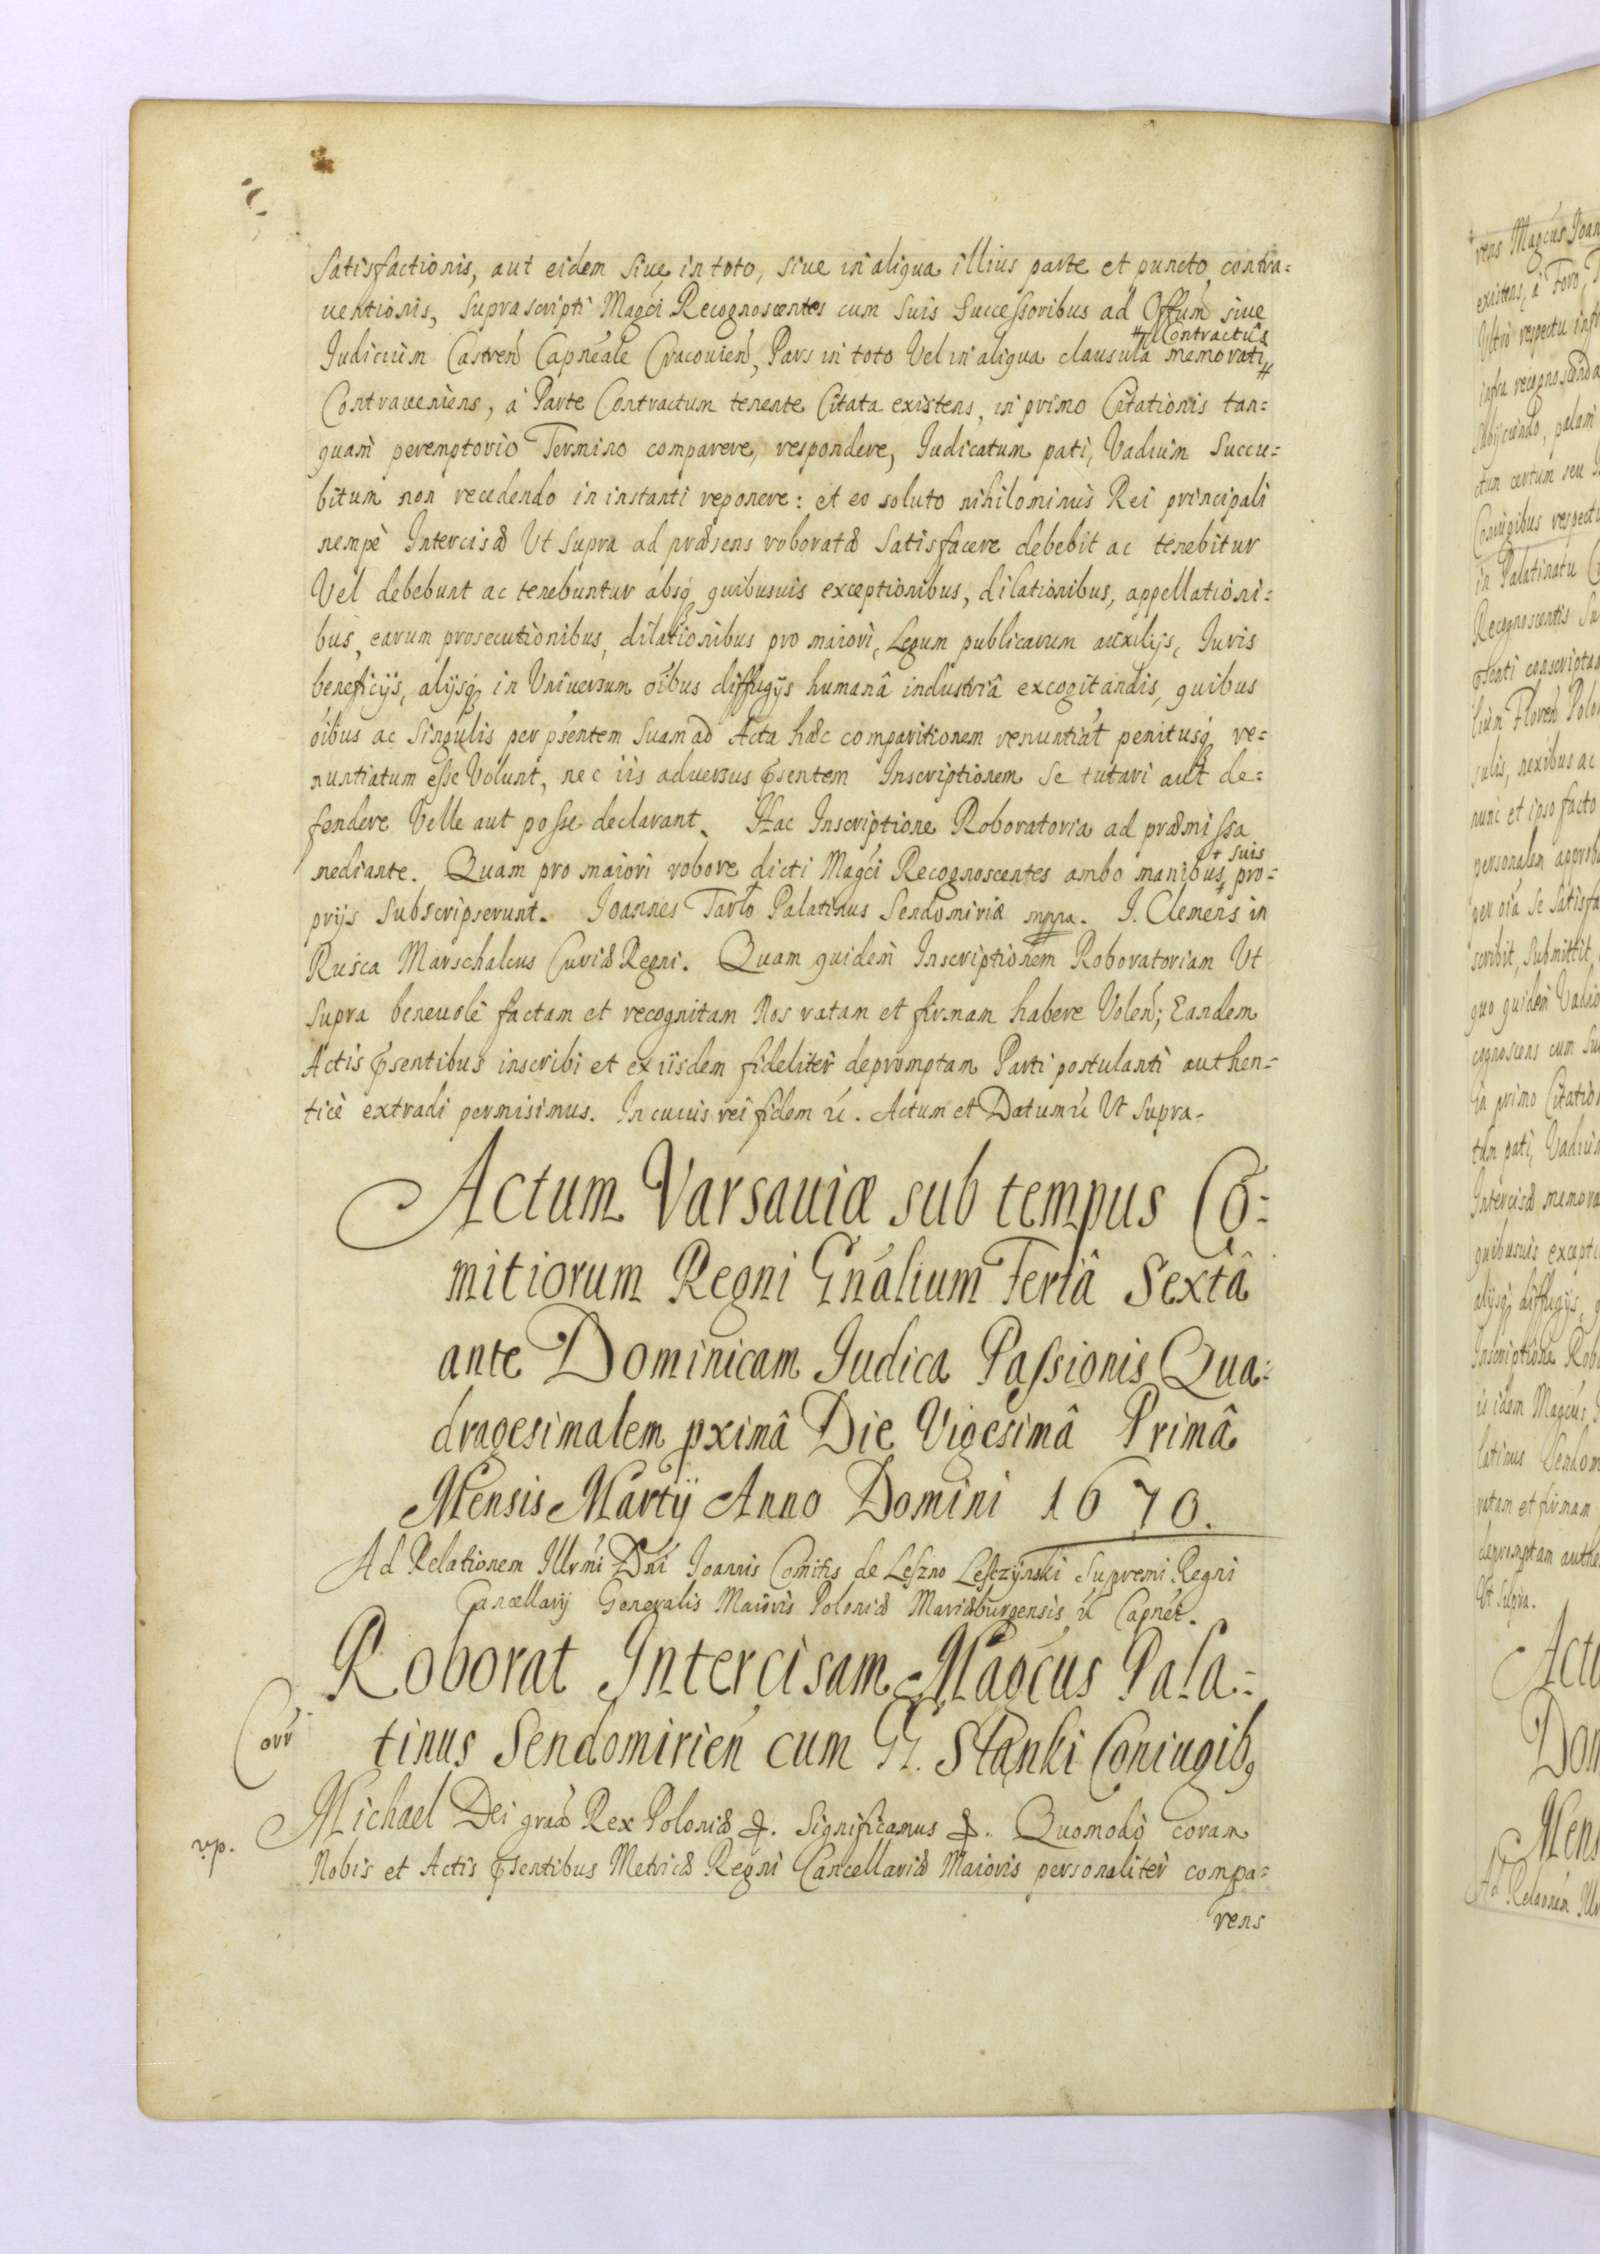 Satisfactionis, aut eidem siue in toto, siue in aliqua illius parte et puncto, contra=
uentionis, suprascripti Magci Recognoscentes cum suis Successoribus ad Offum siue
# Contractus
Iudicium Castren Capneale Cracouien, Pars in toto Vel in aliqua clausula memorati #
Contraueniens, à Parte Contractum tenente Citata existens, in primo Citationis tan=
quam peremptorio Termino comparere, respondere, Iudicatum pati, Vadium Succu=
bitum non recedendo in instanti reponere: et eo soluto nihilominus Rei principali
nempè Intercisæ Ut Supra ad præsens roboratæ Satisfacere debebit ac tenebitur
Vel debebunt ac tenebuntur absq quibusuis exceptionibus, dilationibus, appellationi=
bus, earum prosecutionibus, dilationibus pro maiori, Legum publicarum auxilijs, Iuris
beneficijs, alijsq in Uniuersum oibus diffugijs humanâ industriâ excogitandis, quibus
oibus ac Singulis per psentem Suam ad Acta hæc comparitionem renuntiat penitusq re=
nuntiatum esse Volunt, nec iis aduersus psentem Inscriptionem Se tutari aut de=
fendere Velle aut posse declarant. Hac Inscriptione Roboratoria ad præmissa
+ suis
mediante. Quam pro maiori robore dicti Magci Recognoscentes ambo manibus + pro=
prijs Subscripserunt. Ioannes Tarło Palatinus Sendomiriæ mppa. I. Clemens in
Rusca Marschalcus Curiæ Regni. Quam quidem Inscriptionem Roboratoriam Ut
Supra beneuolè factam et recognitam Nos ratam et firmam habere Volen; Eandem
Actis psentibus inscribi et ex iisdem fideliter depromptam Parti postulanti authen=
ticè extradi permisimus. In cuius rei fidem &. Actum et Datum & Ut Supra.
Actum Varsauiæ sub tempus Co=
mitiorum Regni Gnalium Feriâ Sextâ
ante Dominicam Iudica Passionis Qua=
dragesimalem pximâ Die Vigesimâ Primâ
Mensis Martij Anno Domini 1670.
Ad Relationem Illrmi Dni Ioannis Comitis de Leszno Lesczynski Supremi Regni
Cancellarij Generalis Maioris Poloniæ Mariæburgensis & Capnei.
Roborat Intercisam Magcus Pala=
tinus Sendomirien cum GG. Stanki Coniugib9
Corr
Michael Dei graa Rex Poloniæ &. Significamus &. Quomodo coram
rp.
Nobis et Actis psentibus Metricæ Regni Cancellariæ Maioris personaliter compa=
rens